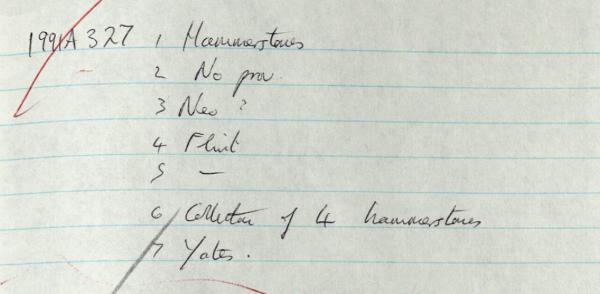 1991A 327 1 Hammerstones
2 No prov.
3 Neo ?
4 Flint
5 —
6 Collection of 4 hammerstones
7 Yates.